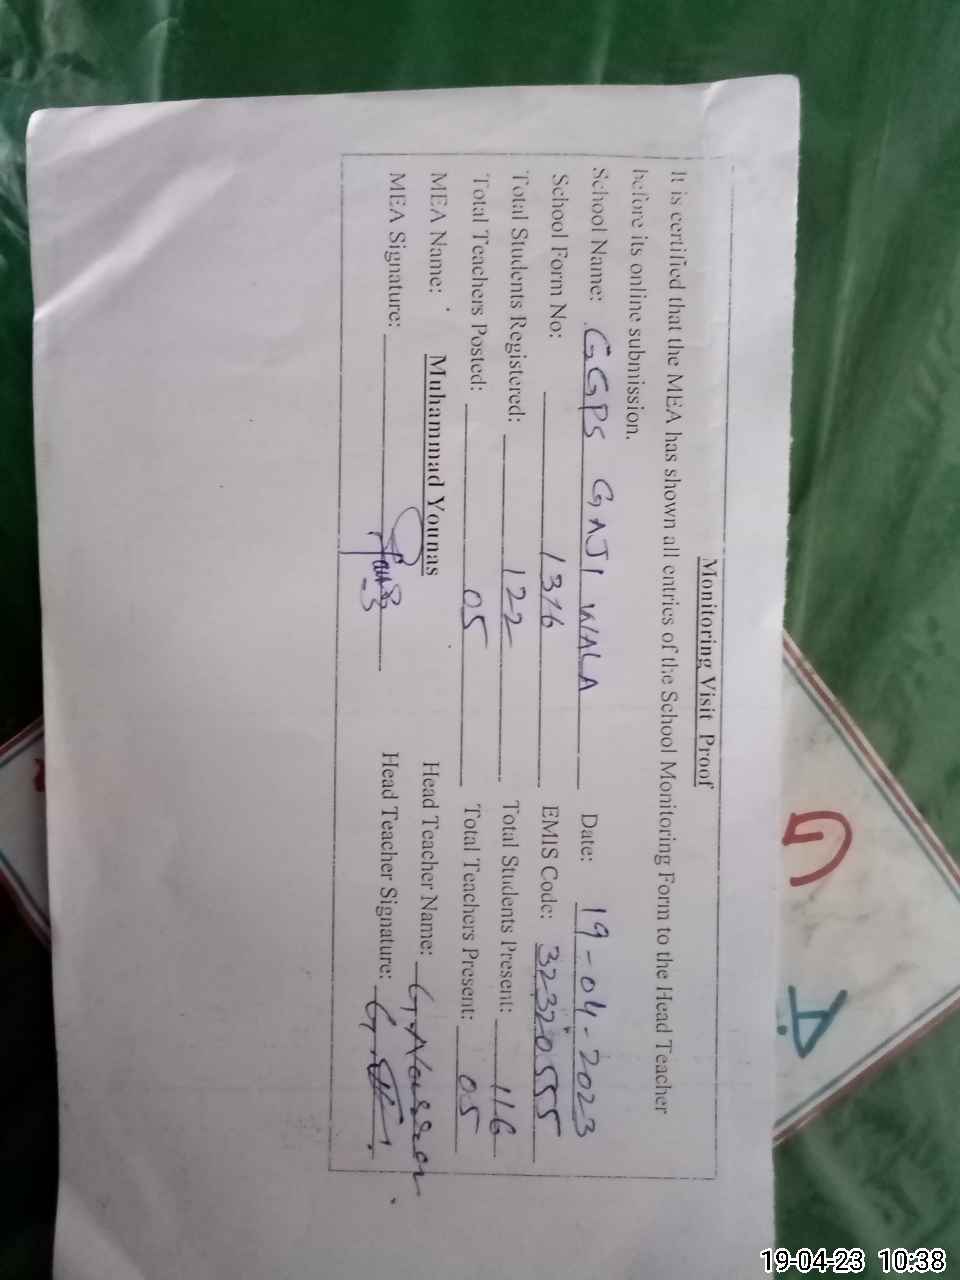 Monitoring Visit Proof
It is certified that the MEA has shown all entries of the School Monitoring Form to the Head Teacher
before its online submission.
School Name: GGPS GAJI WALA Date: 19-04-2023
School Form No: 1316 EMIS Code: 32320555
Total Students Registered: 122 Total Students Present: 116
Total Teachers Posted: 05 Total Teachers Present: 05
MEA Name: Muhammad Younas Head Teacher Name:
MEA Signature: Head Teacher Signature:
G A
19-04-23 10:38